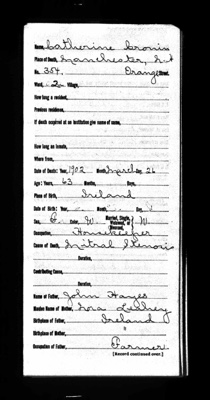 Name, Catherine Cronin
Place of Death, Manchester, N.H.
No. 354, Orange Street.
Ward, 2. Village,
How long a resident,
Previous residence,
If death occurred at an institution give name of same,
How long an inmate,
Where from,
Date of Death: Year, 1902 Month, March Day, 26
Age: Years, 63 Months, Days,
Place of Birth, Ireland
Date of Birth: Year, Month, Day,
Sex, F. Color, W. Married, Single, Widowed, or Divorced, W
Occupation, Housekeeper
Cause of Death, Mitral Stenosis
Duration,
Contributing Cause,
Duration,
Name of Father, John Hayes
Maiden Name of Mother,
Birthplace of Father, Ireland
Birthplace of Mother, "
Occupation of Father, Farmer
[Record continued over.]